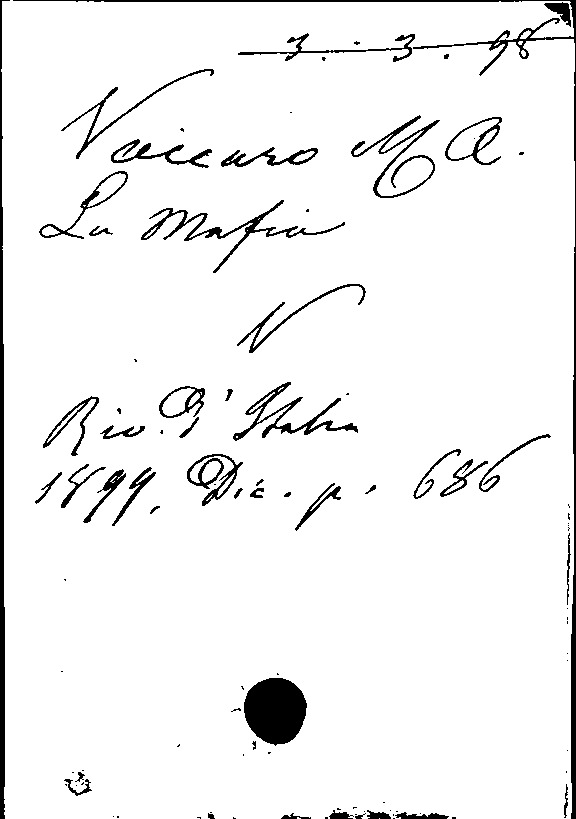 3. 3. 98
Vaccaro M A.
La Mafia
V
Riv. d'Italia
1899. Dic. p. 686